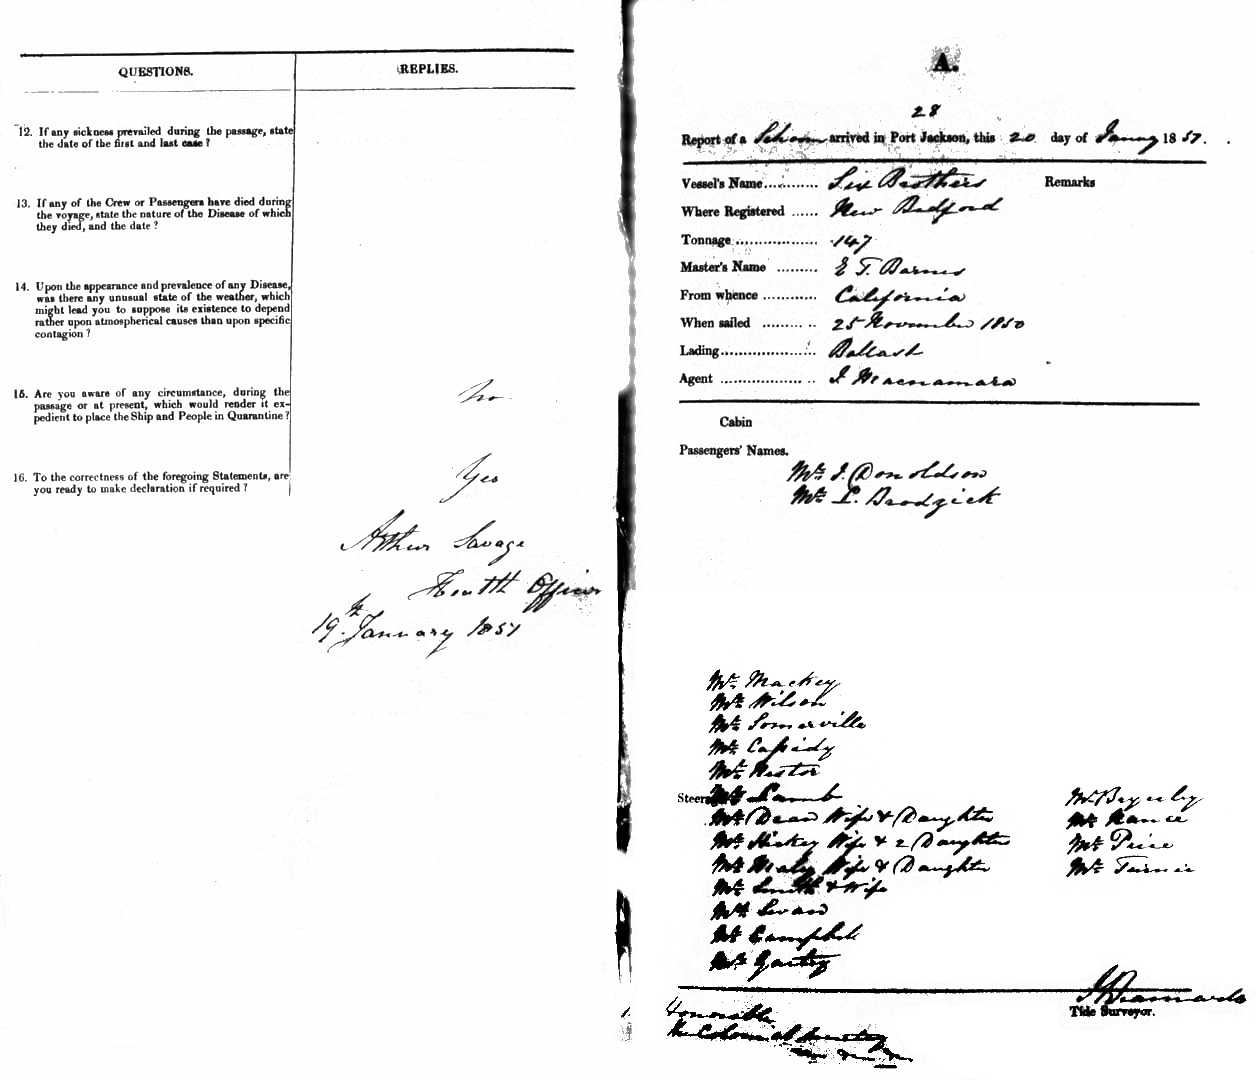 QUESTIONS.
REPLIES.
12. If any sickness prevailed during the passage, state
the date of the first and last case ?
13. If any of the Crew or Passengers have died during
the voyage, state the nature of the Disease of which
they died, and the date ?
14. Upon the appearance and prevalence of any Disease,
was there any unusual state of the weather, which
might lead you to suppose its existence to depend
rather upon atmospherical causes than upon specific
contagion ?
15. Are you aware of any circumstance, during the
passage or at present, which would render it ex-
pedient to place the Ship and People in Quarantine ?
No
16. To the correctness of the foregoing Statements, are
you ready to make declaration if required ?
Yes
Arthur Savage
Health Officer
19th January 1851
A.
28
Report of a Schooner arrived in Port Jackson, this 20 day of January 1851.
Vessel's Name............ Six Brothers
Remarks
Where Registered ...... New Bedford
Tonnage .................. 147
Master's Name ......... E T. Barnes
From whence ............ California
When sailed ......... .. 25 November 1850
Lading..................... Ballast
Agent .................. .. Macnamara
Cabin
Passengers' Names.
Mr. J. Donoldson
Mr. Brodzick
Mr. Mackey
Mr. Wilson
Mr. Somerville
Mr. Cassidy
Mr. Nestor
Steer Mr Lamb
Mr. Dean Wife & Daughter
Mr. Hickey Wife & 2 Daughters
Mr. Healy Wife & Daughter
Mr. Smith & Wife
Mr. Swan
Mr. Campbell
Mr.
Mr.
Mr. Nance
Mr. Price
Mr. Turner
Tide Surveyor.
Honorable
the Colonial Secretary